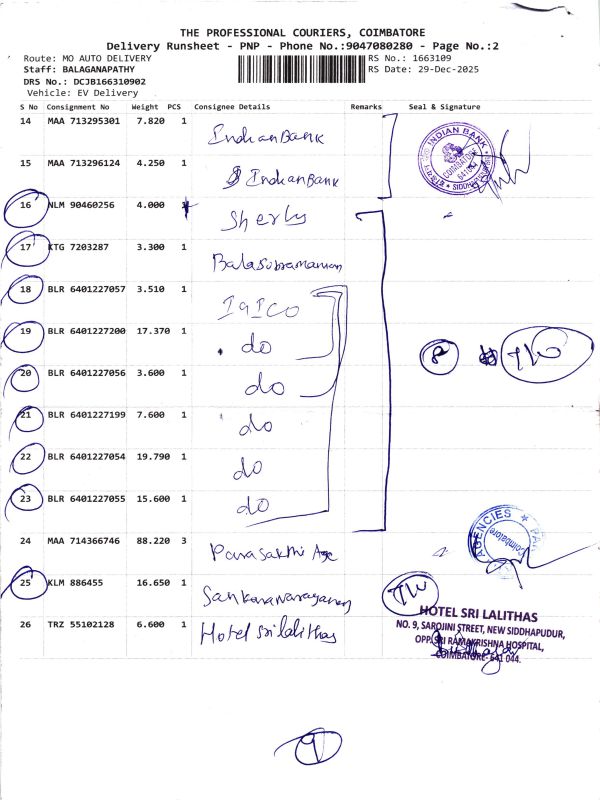 THE PROFESSIONAL COURIERS, COIMBATORE
Delivery Runsheet - PNP - Phone No.:9047080280 - Page No.:2
Route: MO AUTO DELIVERY
Staff: BALAGANAPATHY
DRS No.: DCJB166310902
Vehicle: EV Delivery
RS No.: 1663109
RS Date: 29-Dec-2025
S No Consignment No Weight PCS Consignee Details Remarks Seal & Signature
14 MAA 713295301 7.820 1 Indian Bank
15 MAA 713296124 4.250 1 Indian Bank
INDIAN BANK
COIMBATORE
16 NLM 90460256 4.000 Sherly
17 KTG 7203287 3.300 1 Balasubramanian
18 BLR 6401227057 3.510 1
19 BLR 6401227200 17.370 1 do
20 BLR 6401227056 3.600 1 do
21 BLR 6401227199 7.600 1 do
22 BLR 6401227054 19.790 1 do
23 BLR 6401227055 15.600 1 do
24 MAA 714366746 88.220 3
AGENCIES
Coimbatore
25 KLM 886455 16.650 1 Sankaranarayanan
26 TRZ 55102128 6.600 1 Hotel sri lalithas
HOTEL SRI LALITHAS
NO. 9, SAROJINI STREET, NEW SIDDHAPUDUR,
OPP. SRI RAMAKRISHNA HOSPITAL,
COIMBATORE- 641 044.